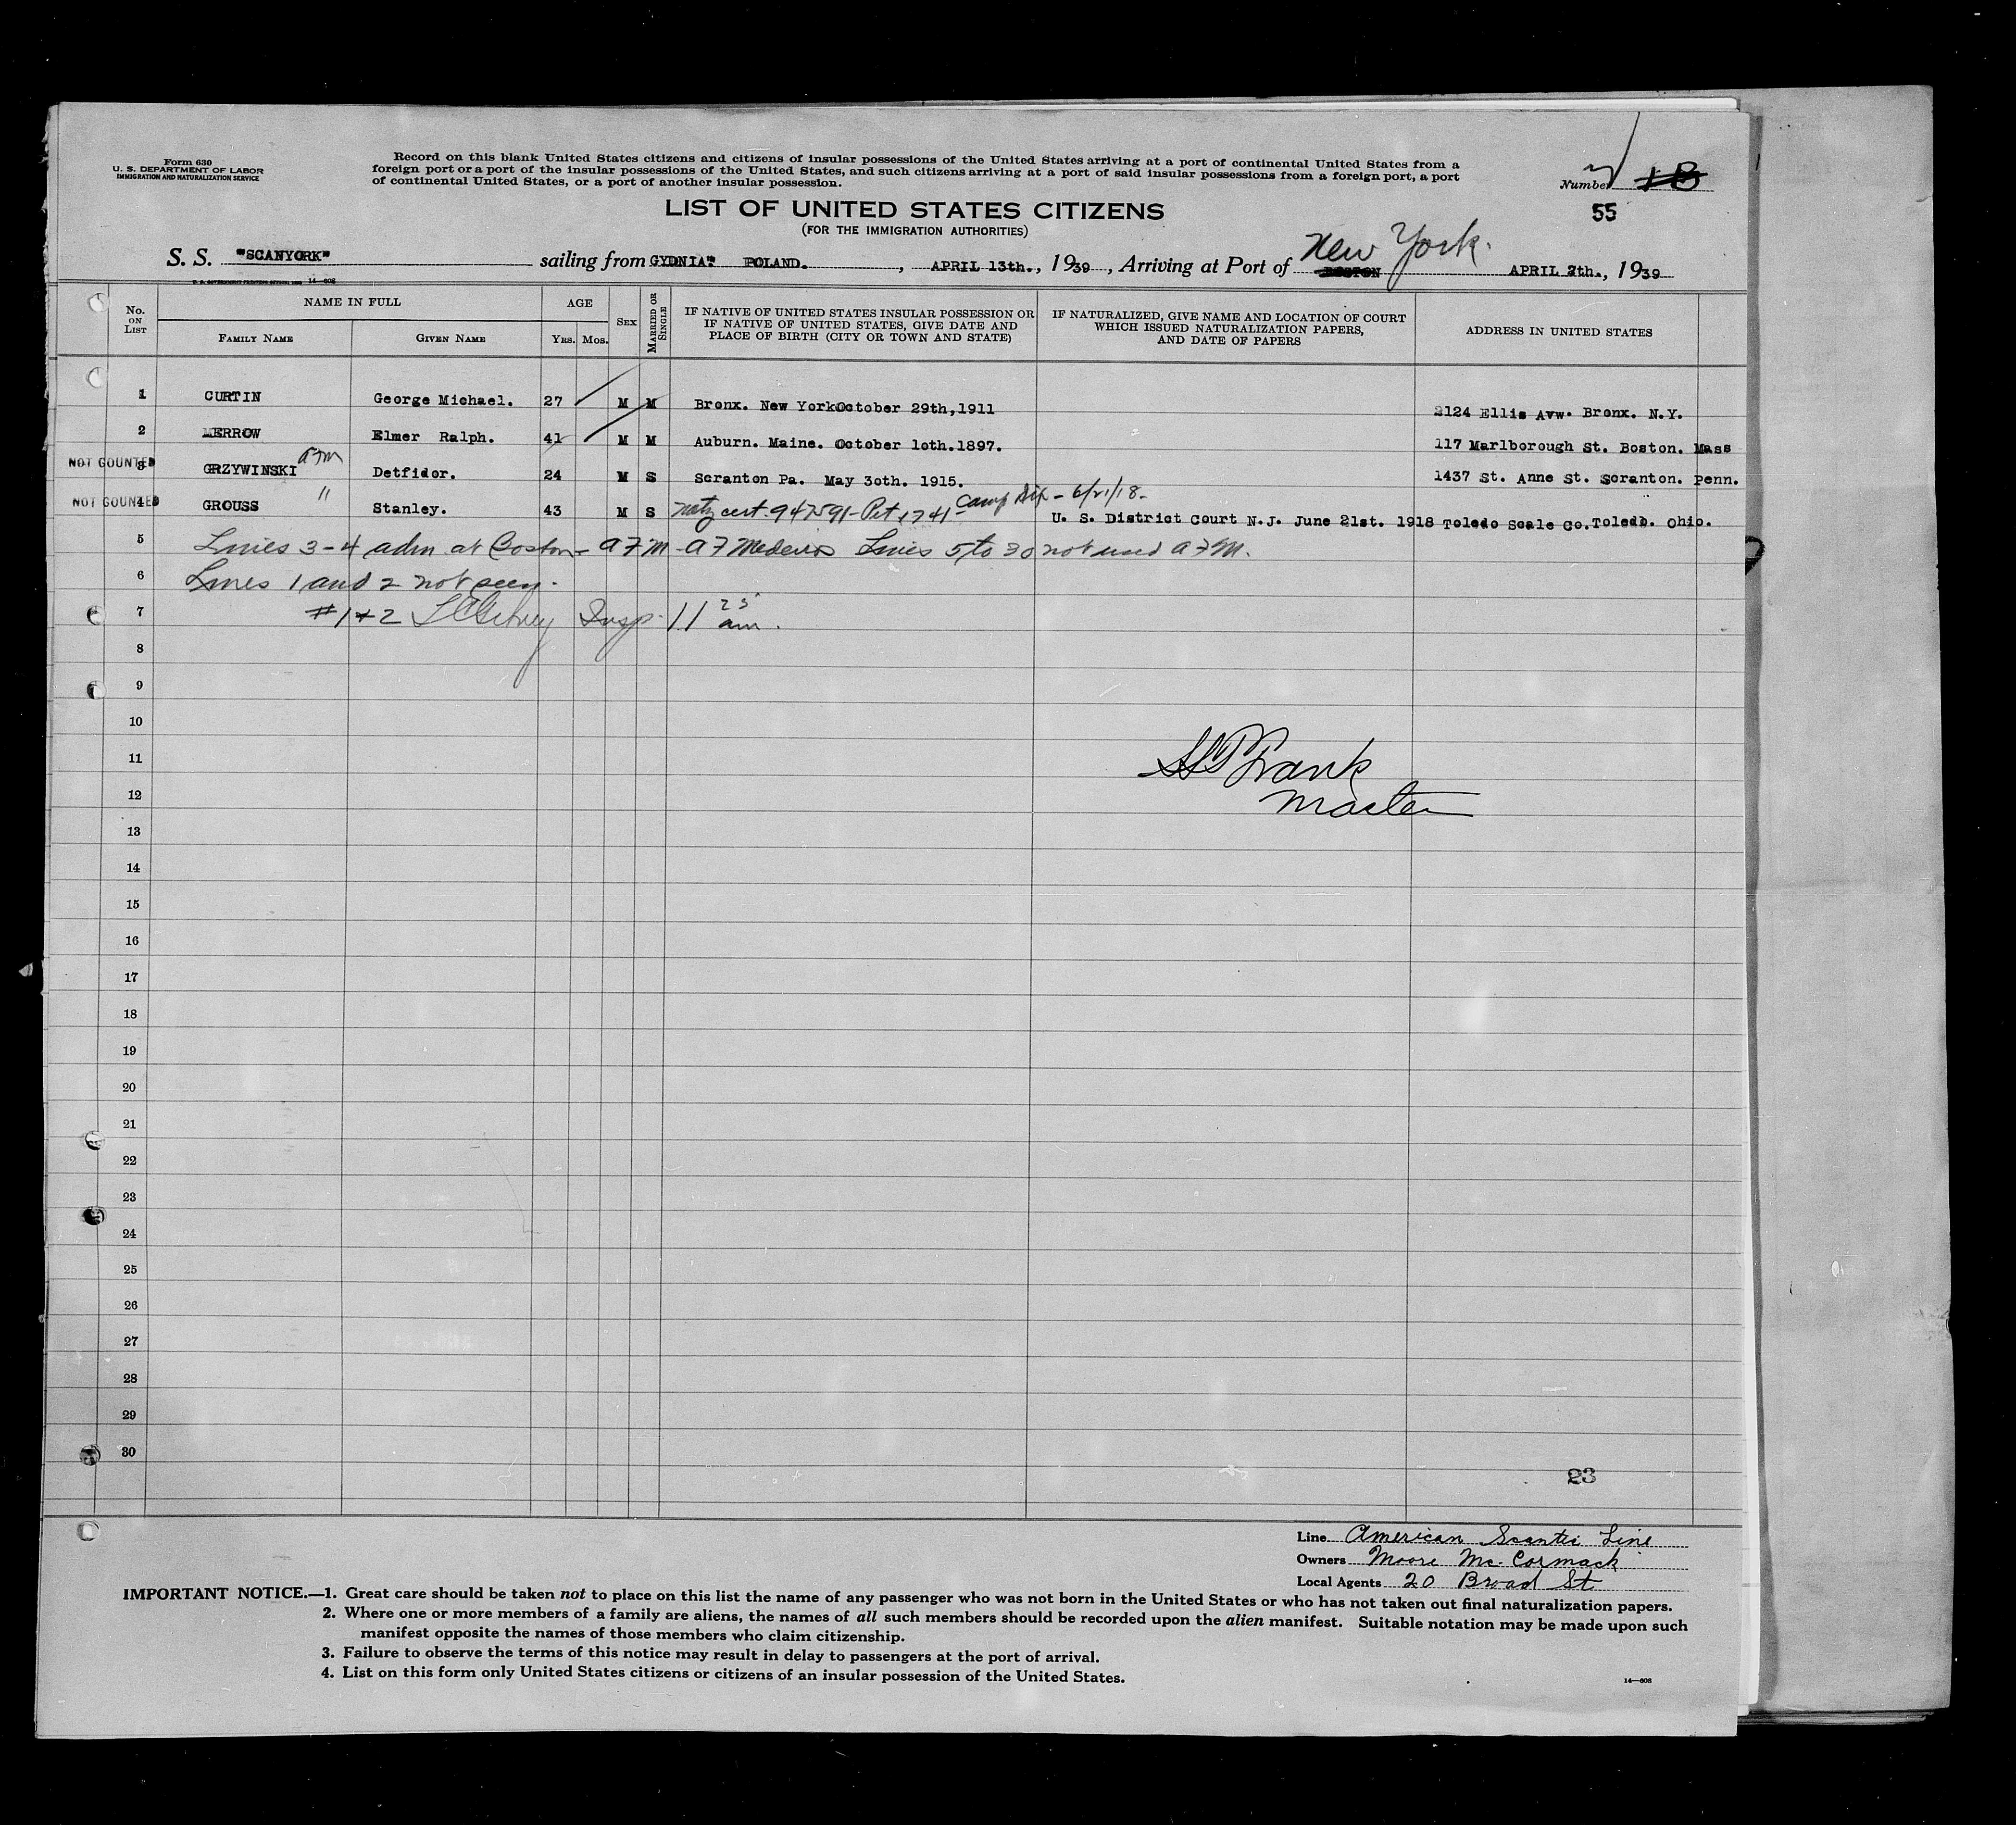 Form 630
U. S. DEPARTMENT OF LABOR
IMMIGRATION AND NATURALIZATION SERVICE
Record on this blank United States citizens and citizens of insular possessions of the United States arriving at a port of continental United States from a
foreign port or a port of the insular possessions of the United States, and such citizens arriving at a port of said insular possessions from a foreign port, a port
of continental United States, or a port of another insular possession.
Number
55
LIST OF UNITED STATES CITIZENS
(FOR THE IMMIGRATION AUTHORITIES)
S. S. "SCANYORK" sailing from GYDNIA" POLAND. , APRIL 13th. , 1939 , Arriving at Port of BOSTON New York. APRIL 2th., 1939
14—608
No. ON LIST
NAME IN FULL
FAMILY NAME
GIVEN NAME
AGE
YRS. MOS.
SEX
MARRIED OR SINGLE
IF NATIVE OF UNITED STATES INSULAR POSSESSION OR
IF NATIVE OF UNITED STATES, GIVE DATE AND
PLACE OF BIRTH (CITY OR TOWN AND STATE)
IF NATURALIZED, GIVE NAME AND LOCATION OF COURT
WHICH ISSUED NATURALIZATION PAPERS,
AND DATE OF PAPERS
ADDRESS IN UNITED STATES
1 CURTIN George Michael. 27 M M Bronx. New York October 29th,1911 2124 Ellis Avw. Bronx. N.Y.
2 MERROW Elmer Ralph. 41 M M Auburn. Maine. October 10th.1897. 117 Marlborough St. Boston. Mass
NOT COUNTED 3 GRZYWINSKI AFM Detfidor. 24 M S Scranton Pa. May 30th. 1915. 1437 St. Anne St. Scranton. Penn.
NOT COUNTED 4 GROUSS " Stanley. 43 M S Natz cert. 947591 - Pet 1741 Camp Dix - 6/21/18- U. S. District Court N.J. June 21st. 1918 Toledo Scale Co.Toledo. Ohio.
5 Lines 3-4 adm at Boston - AFM - AF Medeiros Lines 5 to 30 not used AFM.
6 Lines 1 and 2 not seen.
7 #1+2 Insp. 11 25 am.
8
9
10
11 Frank
12 Master
13
14
15
16
17
18
19
20
21
22
23
24
25
26
27
28
29
30
23
Line American Scantic Line
Owners Moore Mc. Cormack
Local Agents 20 Broad St
IMPORTANT NOTICE.—1. Great care should be taken not to place on this list the name of any passenger who was not born in the United States or who has not taken out final naturalization papers.
2. Where one or more members of a family are aliens, the names of all such members should be recorded upon the alien manifest. Suitable notation may be made upon such
manifest opposite the names of those members who claim citizenship.
3. Failure to observe the terms of this notice may result in delay to passengers at the port of arrival.
4. List on this form only United States citizens or citizens of an insular possession of the United States.
14—608